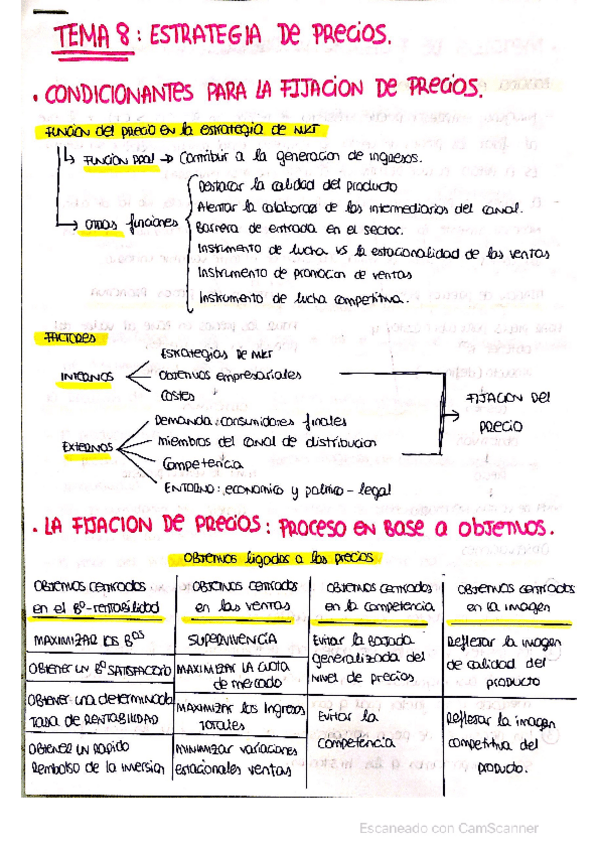 TEMA 8: ESTRATEGIA DE PRECIOS.
• CONDICIONANTES PARA LA FIJACION DE PRECIOS.
FUNCIÓN del PRECIO EN la ESTRATEGIA DE MKT
FUNCIÓN PPAL → Contribuir a la generacion de ingresos.
OTRAS funciones
Destacar la calidad del producto
Alentar la colaborac de los intermediarios del canal.
Barrera de entrada en el sector.
Instrumento de lucha vs la estacionalidad de las ventas
Instrumento de promocion de ventas
Instrumento de lucha competitiva.
FACTORES
INTERNOS
Estrategias de MKT
Objetivos empresariales
Costes
EXTERNOS
Demanda: consumidores finales
Miembros del canal de distribucion
Competencia
ENTORNO: economico y politico-legal
FIJACION DEl
PRECIO
• LA FIJACION DE PRECIOS: PROCESO EN BASE A OBJETIVOS.
OBJETIVOS ligados a los precios
OBJETIVOS CENTRADOS
en el Bº-RENTABILIDAD
MAXIMIZAR los Bos
OBTENER UN Bº SATISFACTORIO
OBTENER una determinada
TASA de RENTABILIDAD
OBTENER UN RAPIDO
Rembolso de la inversion
OBJETIVOS CENTRADOS
en las ventas
SUPERVIVENCIA
MAXIMIZAR LA CUOTA
de mercado
MAXIMIZAR los Ingresos
Totales
MINIMIZAR variaciones
estacionales ventas
OBJETIVOS CENTRADOS
en la competencia
Evitar la Bajada
generalizada del
Nivel de precios
Evitar la
Competencia
OBJETIVOS CENTRADOS
en la imagen
Reflejar la imagen
de calidad del
PRODUCTO
Reflejar la imagen
competitiva del
producto.
Escaneado con CamScanner